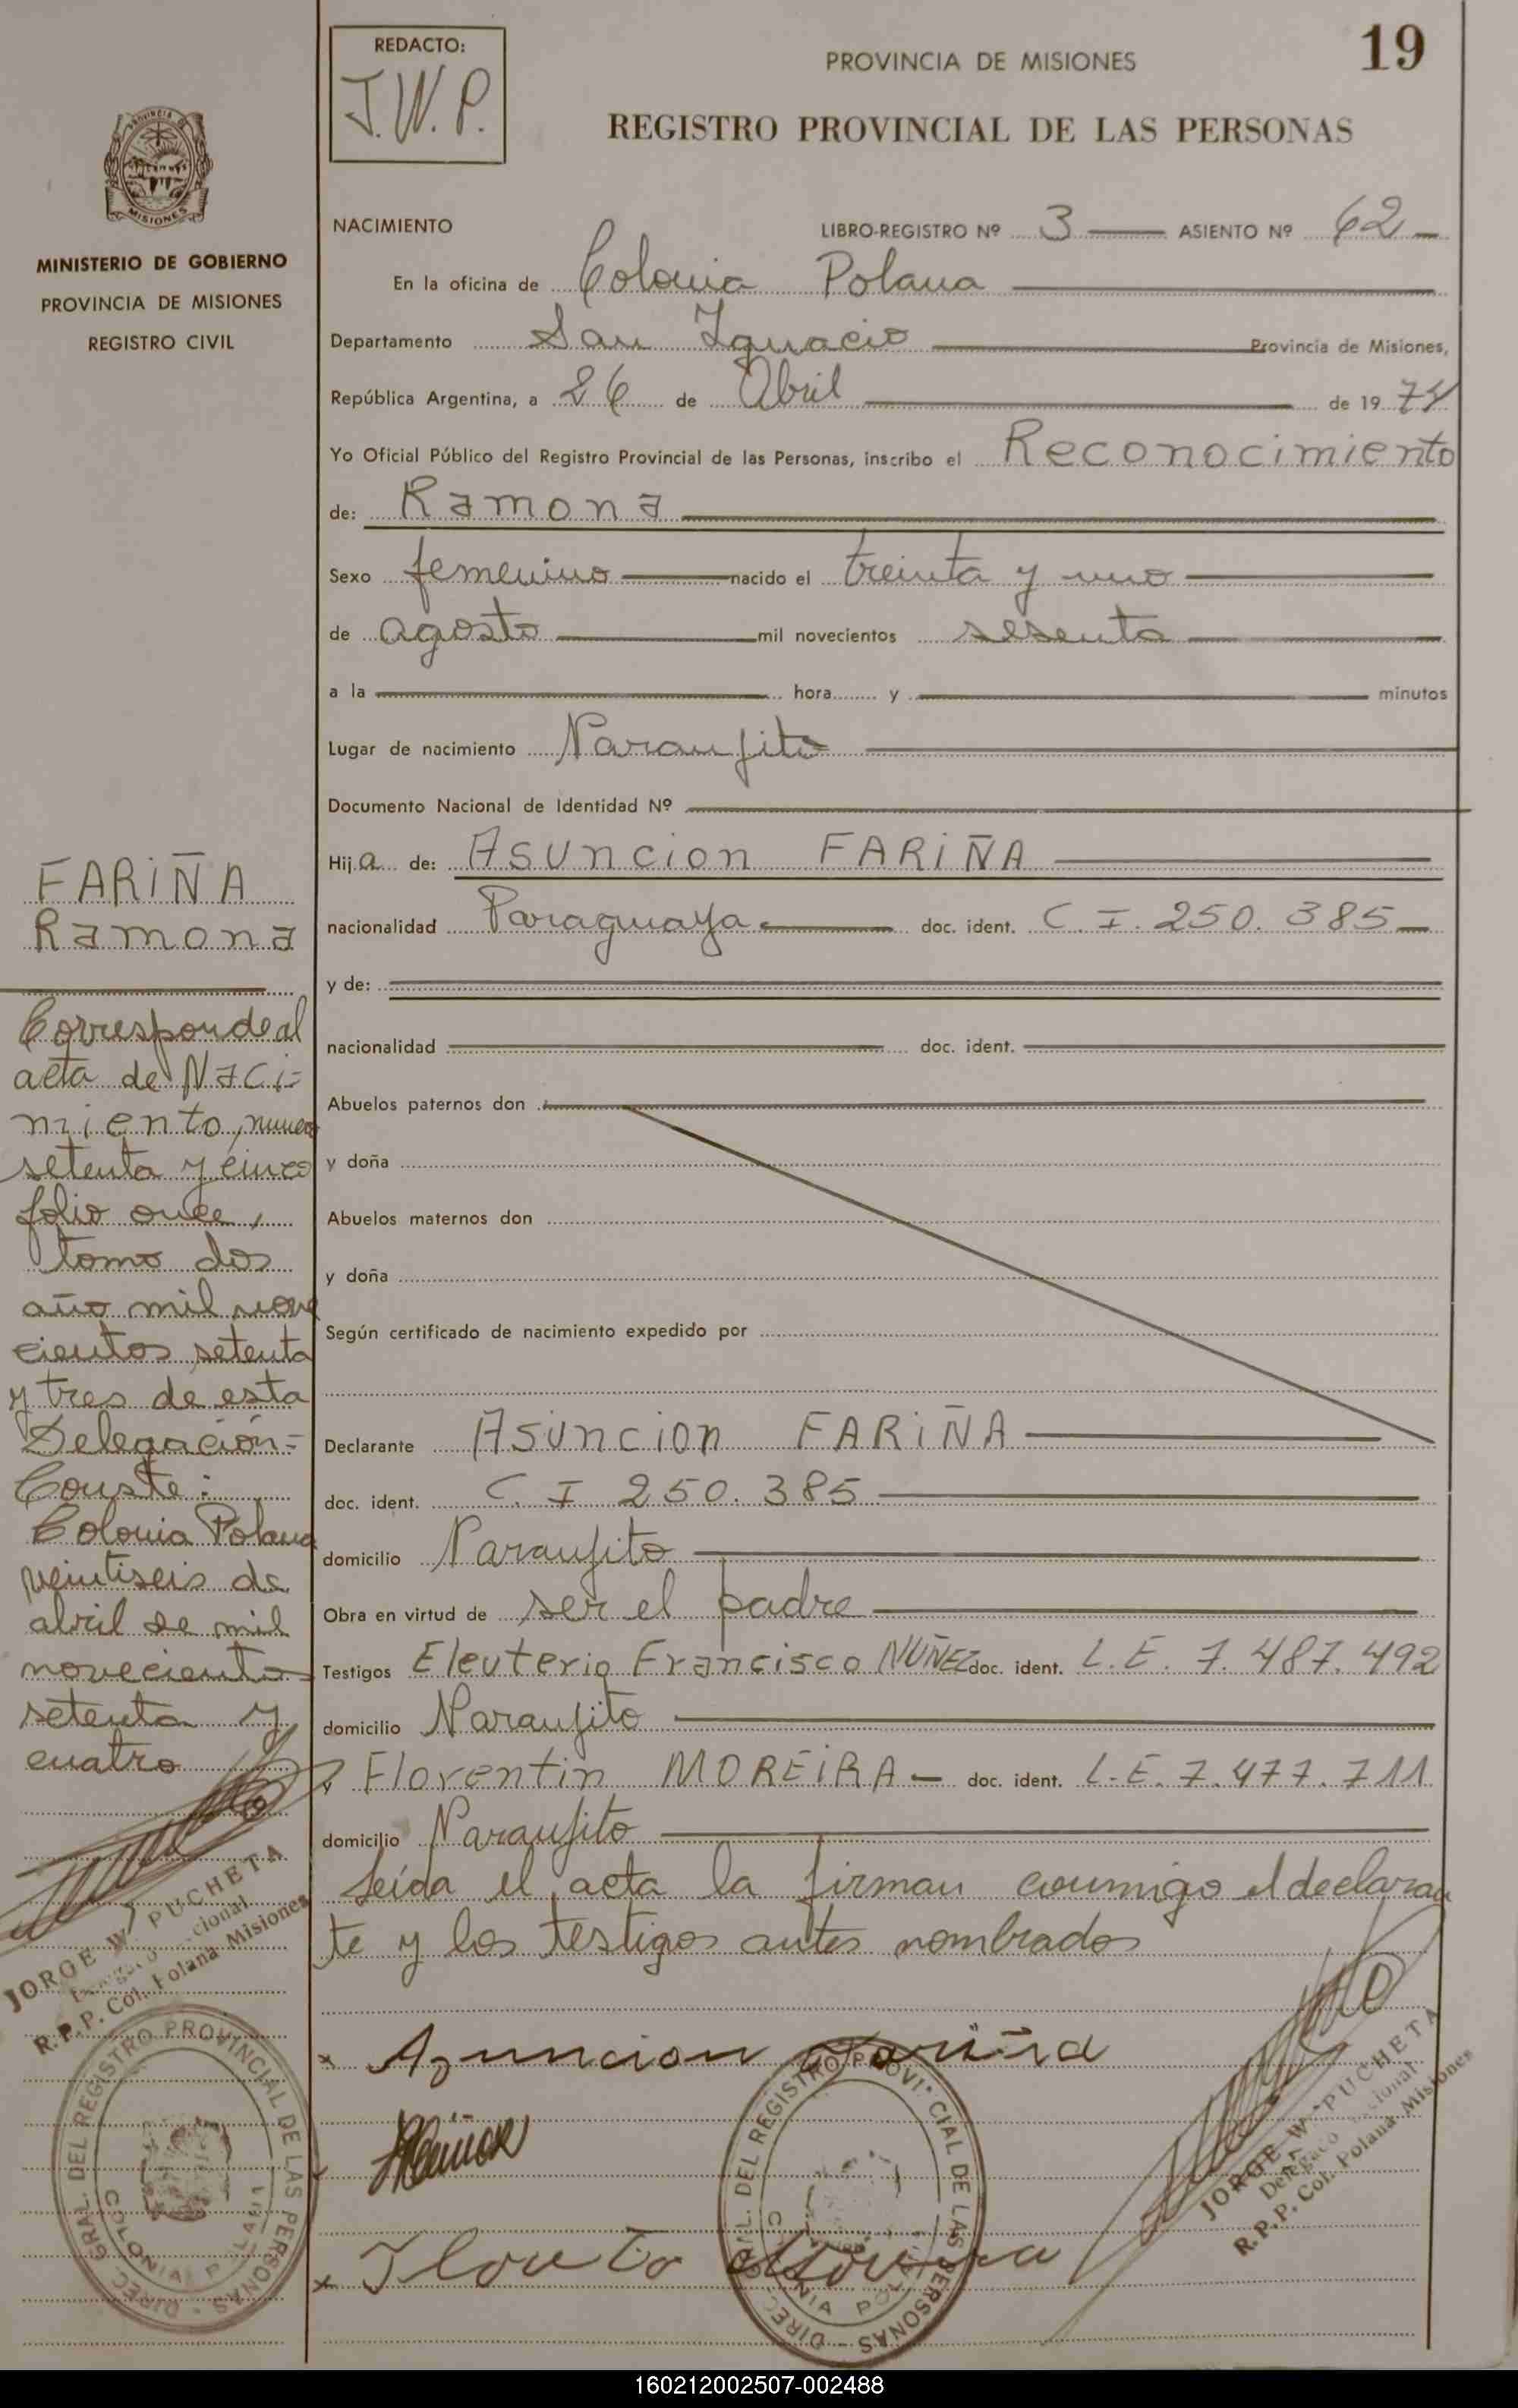 REDACTO:
J.W.P.
PROVINCIA DE MISIONES
19
REGISTRO PROVINCIAL DE LAS PERSONAS
MISIONES
MINISTERIO DE GOBIERNO
PROVINCIA DE MISIONES
REGISTRO CIVIL
NACIMIENTO LIBRO-REGISTRO Nº 3 ASIENTO Nº 62
En la oficina de Colonia Polana
Departamento San Ignacio Provincia de Misiones,
República Argentina, a 26 de Abril de 1974
Yo Oficial Público del Registro Provincial de las Personas, inscribo el Reconocimiento
de: Ramona
Sexo femenino nacido el treinta y uno
de agosto mil novecientos sesenta
a la hora y minutos
Lugar de nacimiento Naranjito
Documento Nacional de Identidad Nº
Hija de: Asuncion FARIÑA
nacionalidad Paraguaya doc. ident. C. I. 250.385
y de:
nacionalidad doc. ident.
Abuelos paternos don
y doña
Abuelos maternos don
y doña
Según certificado de nacimiento expedido por
Declarante Asuncion FARIÑA
doc. ident. C. I 250.385
domicilio Naranjito
Obra en virtud de ser el padre
Testigos Eleuterio Francisco NÚÑEZ doc. ident. L.E. 7.487.492
domicilio Naranjito
y Florentin MOREIRA doc. ident. L.E. 7.477.711
domicilio Naranjito
Leída el acta la firman conmigo el declaran
te y los testigos antes nombrados
FARIÑA
Ramona
Corresponde al
acta de Naci-
miento, numero
setenta y cinco
folio once,
tomo dos
año mil nove
cientos setenta
y tres de esta
Delegación-
Conste:
Colonia Polana
veintiseis de
abril de mil
novecientos
setenta y
cuatro
JORGE W. PUCHETA
R.P.P. Col. Polana-Misiones
DIREC. GRAL. DEL REGISTRO PROVINCIAL DE LAS PERSONAS
COLONIA POLANA
Asuncion Fariña
DIREC. GRAL. DEL REGISTRO PROVINCIAL DE LAS PERSONAS
COLONIA POLANA
JORGE W. PUCHETA
R.P.P. Col. Polana-Misiones
160212002507-002488